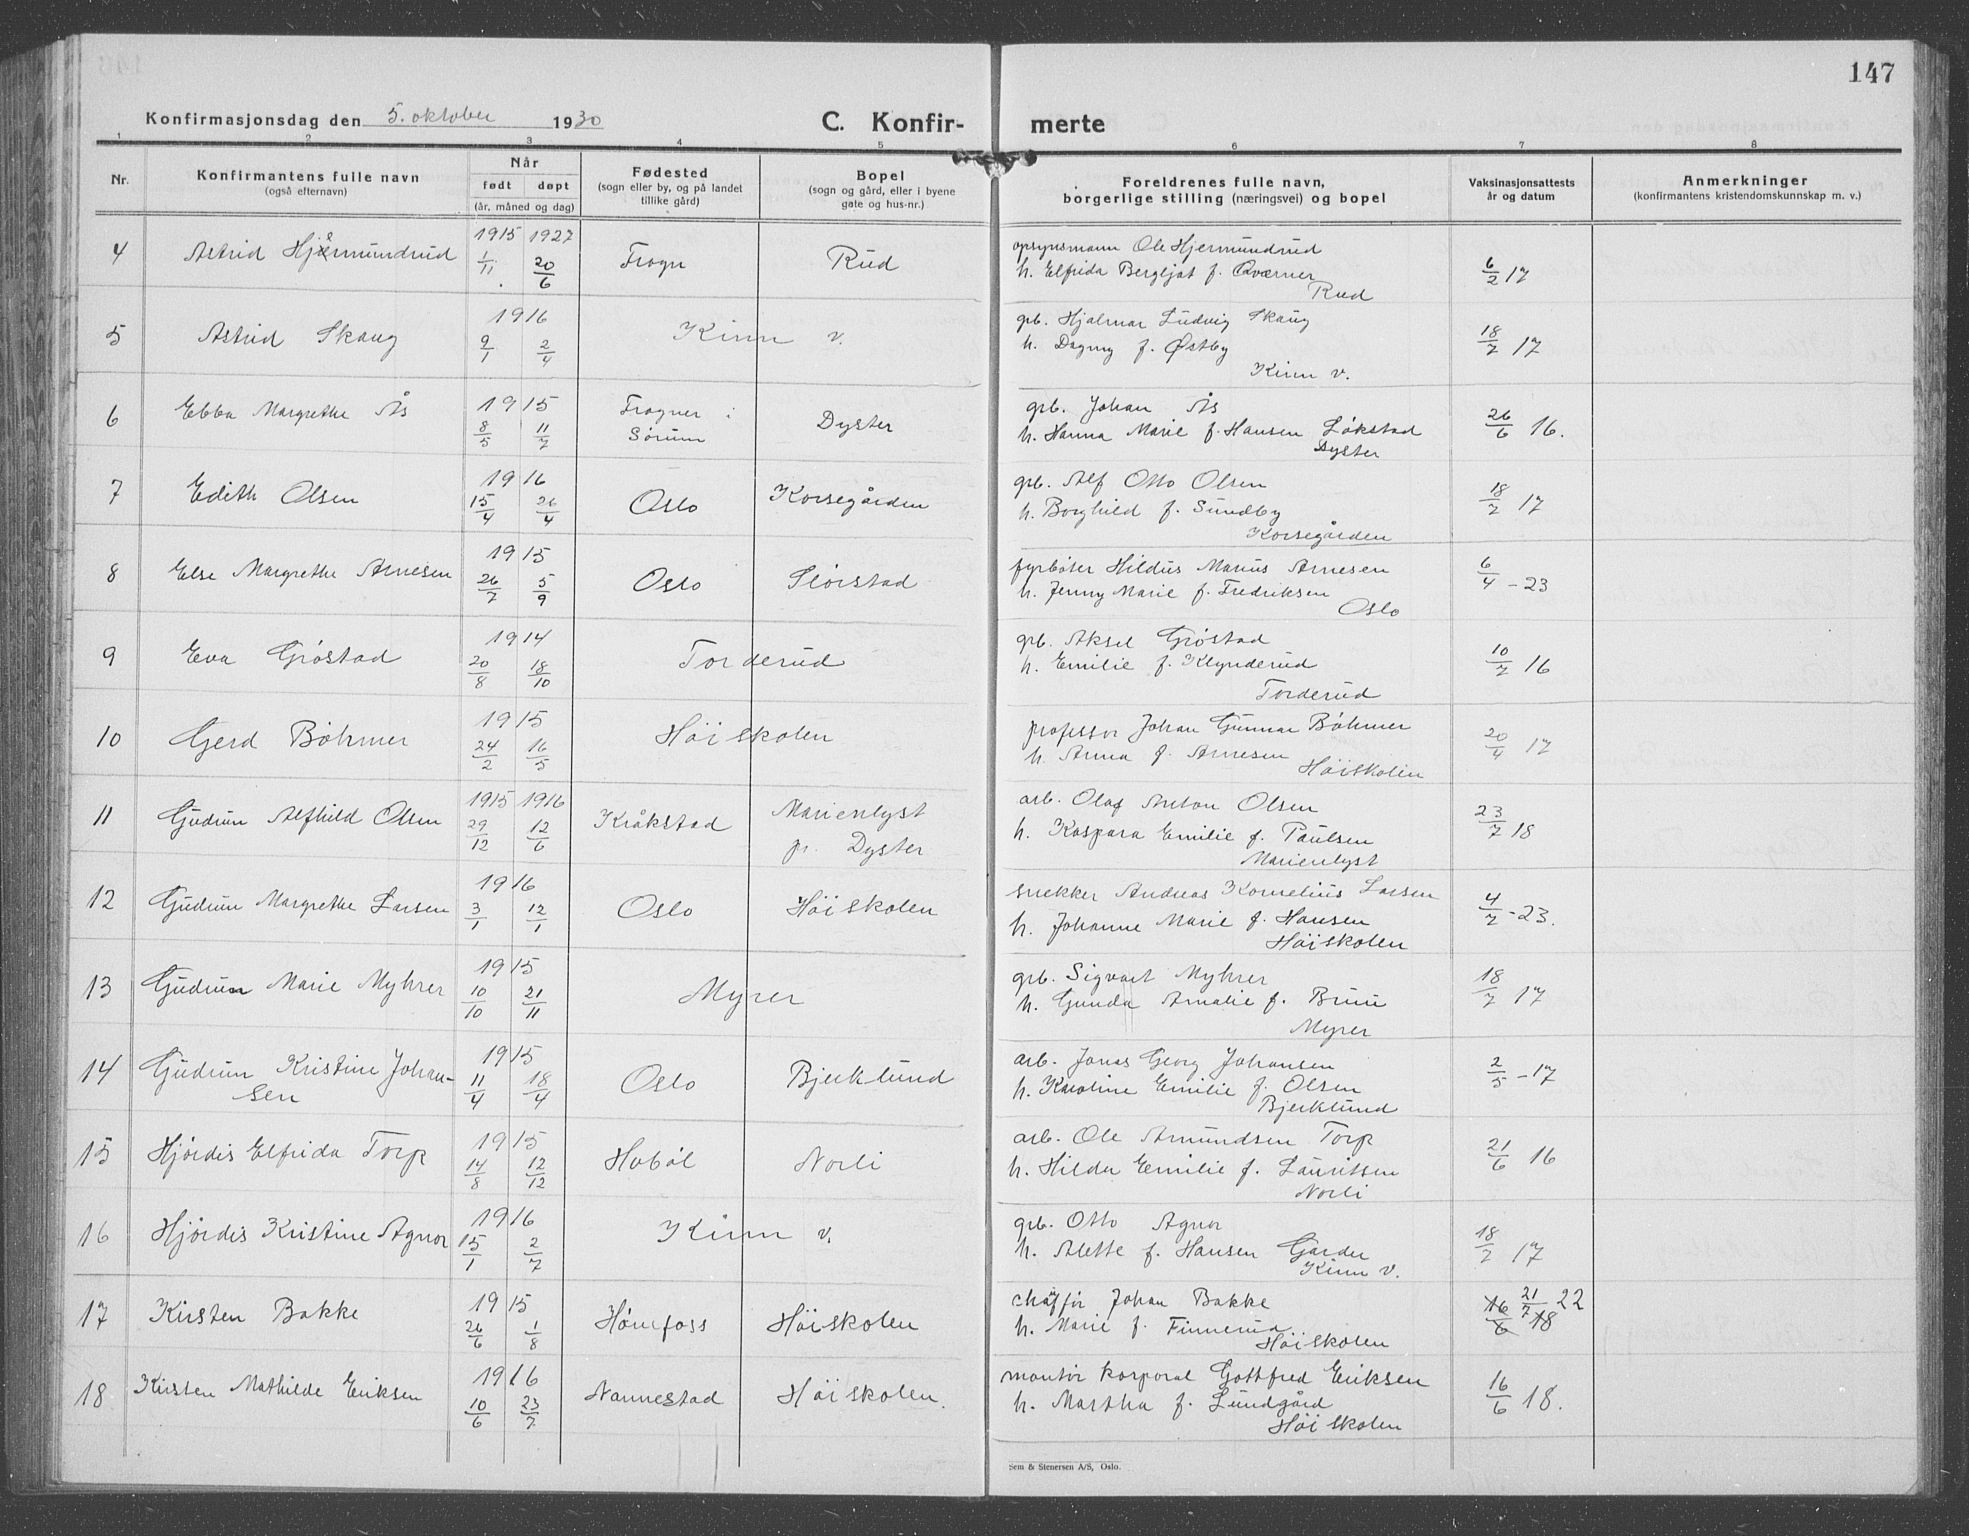 147
Konfirmasjonsdag den 5. oktober 1930 C. Konfir- merte
1 2 3 4 5 6 7 8
Nr. Konfirmantens fulle navn (også efternavn) Når født døpt (år, måned og dag) Fødested (sogn eller by, og på landet tillike gård) Bopel (sogn og gård, eller i byene gate og hus-nr.) Foreldrenes fulle navn, borgerlige stilling (næringsvei) og bopel Vaksinasjonsattests år og datum Anmerkninger (konfirmantens kristendomskunnskap m. v.)
4 Astrid Hjermundrud 1915 1/11 1927 20/6 Frogn Rud opsynsmann Ole Hjermundrud
h. Elfrida Bergljot f. Qværner
Rud 6/2 17
5 Astrid Skaug 1916 9/1 2/4 Kinn v. grb. Hjalmar Ludvig Skaug
h. Dagny f. Østby
Kinn v. 18/7 17
6 Ebba Margrethe Ås 1915 8/5 11/7 Frogner i Sørum Dyster grb. Johan Ås
h. Hanna Marie f. Hansen Løkstad
Dyster 26/6 16.
7 Edith Olsen 1916 15/4 26/4 Oslo Korsegården grb. Alf Otto Olsen
h. Borghild f. Sundby
Korsegården 18/7 17
8 Else Margrethe Arnesen 1915 26/7 5/9 Oslo Slørstad fyrbøter Hildus Marius Arnesen
h. Jenny Marie f. Fredriksen
Oslo 6/4 - 23
9 Eva Grøstad 1914 20/8 18/10 Torderud grb. Aksel Grøstad
h. Emilie f. Klynderud
Torderud 10/7 16
10 Gerd Böhmer 1915 24/2 16/5 Høiskolen professor Johan Gunnar Böhmer
h. Anna f. Arnesen
Høiskolen 20/4 17
11 Gudrun Alfhild Olsen 1915 29/12 1916 12/6 Kråkstad Marienlyst pr. Dyster arb. Olaf Anton Olsen
h. Kaspara Emilie f. Paulsen
Marienlyst 23/7 18
12 Gudrun Margrethe Larsen 1916 3/1 12/1 Oslo Høiskolen snekker Andreas Kornelius Larsen
h. Johanne Marie f. Hansen
Høiskolen 4/7 - 23.
13 Gudrun Marie Myhrer 1915 10/10 21/11 Myrer grb. Sigvart Myhrer
h. Gunda Amalie f. Bruu
Myrer 18/7 17
14 Gudrun Kristine Johan-
sen 1915 11/4 18/4 Oslo Bjerklund arb. Jonas Georg Johansen
h. Karoline Emilie f. Olsen
Bjerklund 2/5 - 17
15 Hjørdis Elfrida Torp 1915 14/8 12/12 Hobøl Norli arb. Ole Amundsen Torp
h. Hilda Emilie f. Lauritsen
Norli 21/6 16
16 Hjørdis Kristine Agnor 1916 15/1 2/7 Kinn v. grb. Otto Agnor
h. Alette f. Hansen Garder
Kinn v. 18/7 17
17 Kirsten Bakke 1915 26/6 1/8 Hønefoss Høiskolen chaffør Johan Bakke
h. Marie f. Finnerud
Høiskolen 16/6 18 21/7 22
18 Kirsten Mathilde Eriksen 1916 10/6 23/7 Nannestad Høiskolen. montør korporal Gottfred Eriksen
h. Martha f. Lundgård
Høiskolen 16/6 18.
Sem & Stenersen A/S, Oslo.